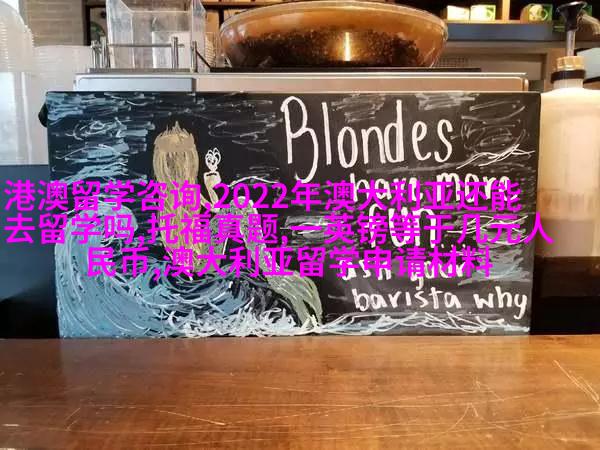 Blondes
港澳留学咨询,2022年澳大利亚还能
have more
去留学吗,托福真题,一英镑等于几元人
FUN
民币,澳大利亚留学申请材料
ask your
barista why